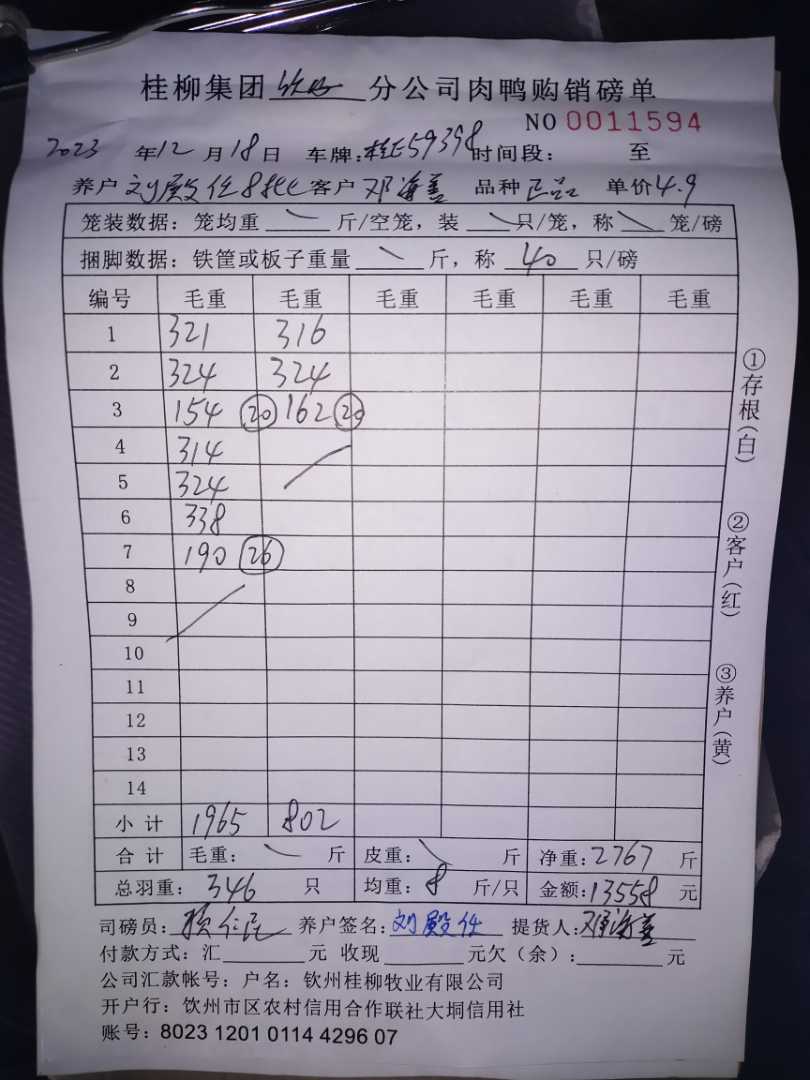 桂柳集团 钦州 分公司肉鸭购销磅单
NO 0011594
2023 年 12 月 18 日 车牌:桂E59398 时间段: 至
养户 刘殿任8批 客户 邓海善 品种 正品 单价 4.9
笼装数据:笼均重 斤/空笼,装 只/笼,称 笼/磅
捆脚数据:铁筐或板子重量 斤,称 40 只/磅
编号 毛重 毛重 毛重 毛重 毛重 毛重
1 321 316
2 324 324
3 154 20 162 20
4 314
5 324
6 338
7 190 26
8
9
10
11
12
13
14
小计 1965 802
合计 毛重: 斤 皮重: 斤 净重:2767 斤
总羽重: 346 只 均重:8 斤/只 金额:13558 元
司磅员: 养户签名:刘殿任 提货人:邓海善
付款方式:汇 元 收现 元欠(余): 元
公司汇款帐号:户名:钦州桂柳牧业有限公司
开户行:钦州市区农村信用合作联社大垌信用社
账号:8023 1201 0114 4296 07
①存根(白)
②客户(红)
③养户(黄)